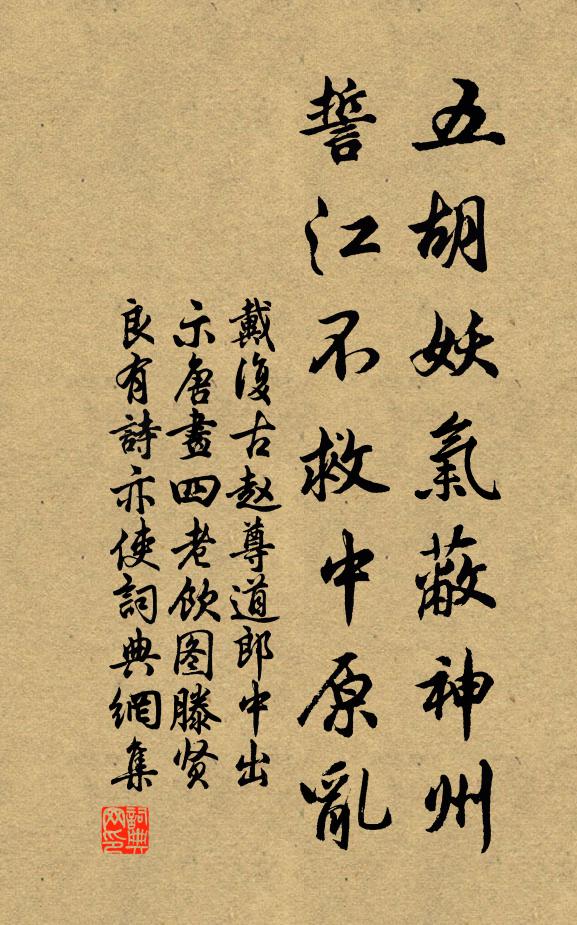 五胡妖氣蔽神州
誓江不救中原亂
戴復古赵尊道郎中出
示唐畫四老飲图滕贤
良有詩亦使詞典網集
詞典网印